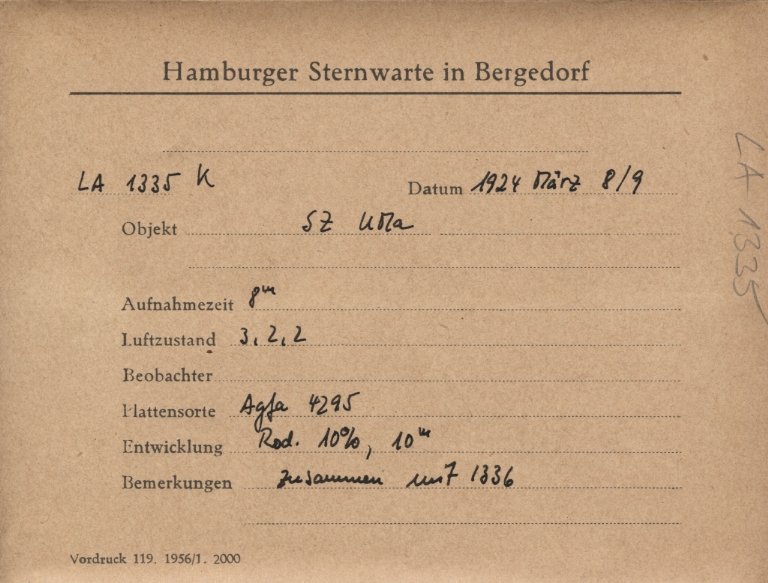 Hamburger Sternwarte in Bergedorf
LA 1335 K Datum 1924 März 8/9
Objekt SZ UMa
Aufnahmezeit 8ᵐ
Luftzustand 3, 2, 2
Beobachter
Plattensorte Agfa 4295
Entwicklung Rod. 10%, 10ᵐ
Bemerkungen zusammen mit 1336
Vordruck 119. 1956/1. 2000
LA 1335